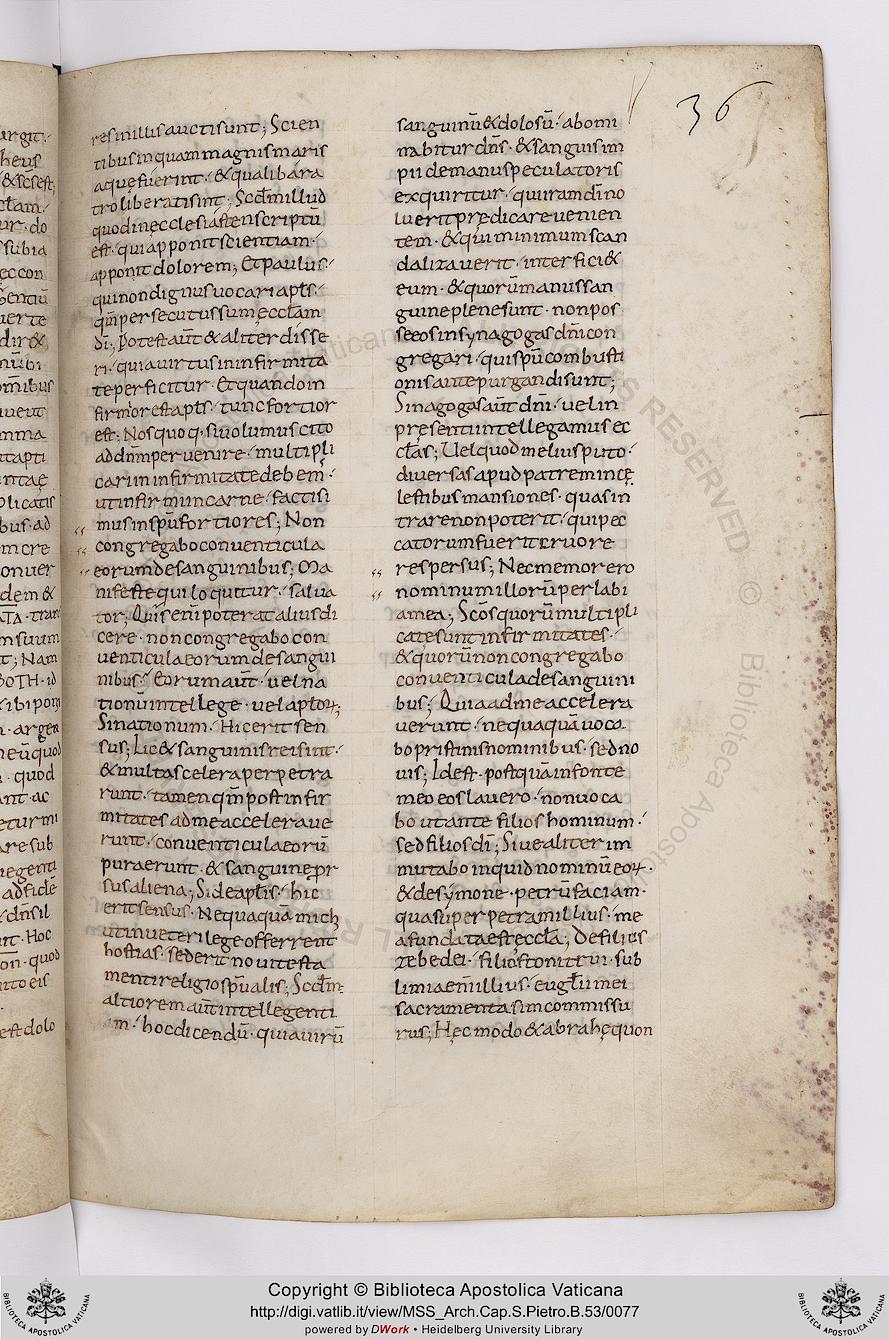 36
resinillis auctisunt; Scien
tibus inquam magnis maris
aquę fuerint · & qualibara
tro liberati sint; Scdm illud
quod in ecclesiasten scriptū
est · qui apponit scientiam ·
apponit dolorem; Et paulus ·
qui non dignus uocari apls ·
qm̄ persecutus sum ecclam
di; Potest aut̄ & aliter disse
ri · quia uirtus in infirmita
te perficitur · Et quando in
firmior est apls · tunc fortior
est; Nos quoq · si uolumus cito
ad dnm peruenire · multipli
cari in infirmitate debem̄ ·
ut infirmi in carne · facti si
mus in spu fortiores; Non
congregabo conuenticula
eorum de sanguinibus; Ma
nifeste qui loquitur · salua
tor; Quis eni poterat alius di
cere · non congregabo con
uenticula eorum de sangui
nibus · Eorum aut̄ · uel na
tionū intellege · uel aploꝝ;
Si nationum · Hic erit sen
sus; Lic& sanguinis rei sint ·
& multa scelera perpetra
runt · tamen qm̄ post infir
mitates ad me accelraue
runt · conuenticula eorū
pura erunt · & sanguine pr
sus aliena; Si de aplis · hic
erit sensus · Nequaquā mich
ut in ueteri lege offerrent
hostias · sed erit noui testa
menti religio spualis; Scdm
altiorem aut̄ intellegenti
am · hoc dicendū · quia uirū
sanguinū & dolosū · abomi
nabitur dns · & sanguis im
pii de manu speculatoris
exquiritur · qui iram di no
luerit prędicare uenien
tem · & qui minimum scan
dalizauerit · interfici&
eum · & quorum manus san
guine plene sunt · non pos
se eos in synagogas dni con
gregari · qui spu combusti
onis ante purgandi sunt;
Sinagogas aut̄ dni · uel in
pręsenti intellegamus ec
clas; Uel quod melius puto ·
diuersas apud patrem in cę
lestibus mansiones · quas in
trare non poterit · qui pec
catorum fuerit cruore
respersus; Nec memor ero
nominum illorū per labi
a mea; Scos quorū multipli
cate sunt infirmitates ·
& quorū non congregabo
conuenticula de sanguini
bus; Quia ad me accelera
uerunt · nequaquā uoca
bo pristinis nominibus · sed no
uis; Id est · postquā in fonte
meo eos lauero · non uoca
bo ut ante filios hominum ·
sed filios di; Siue aliter im
mutabo inquid nominū eoꝝ ·
& de symone · petrū faciam ·
qua super petram illius · me
a fundata est eccla; De filiis
zebedei · filios tonitrui · sub
limia enī illius · eugłii mei
sacramenta sim commissu
rus; Hęc modo & abrahę quon
Copyright © Biblioteca Apostolica Vaticana
http://digi.vatlib.it/view/MSS_Arch.Cap.S.Pietro.B.53/0077
powered by DWork • Heidelberg University Library